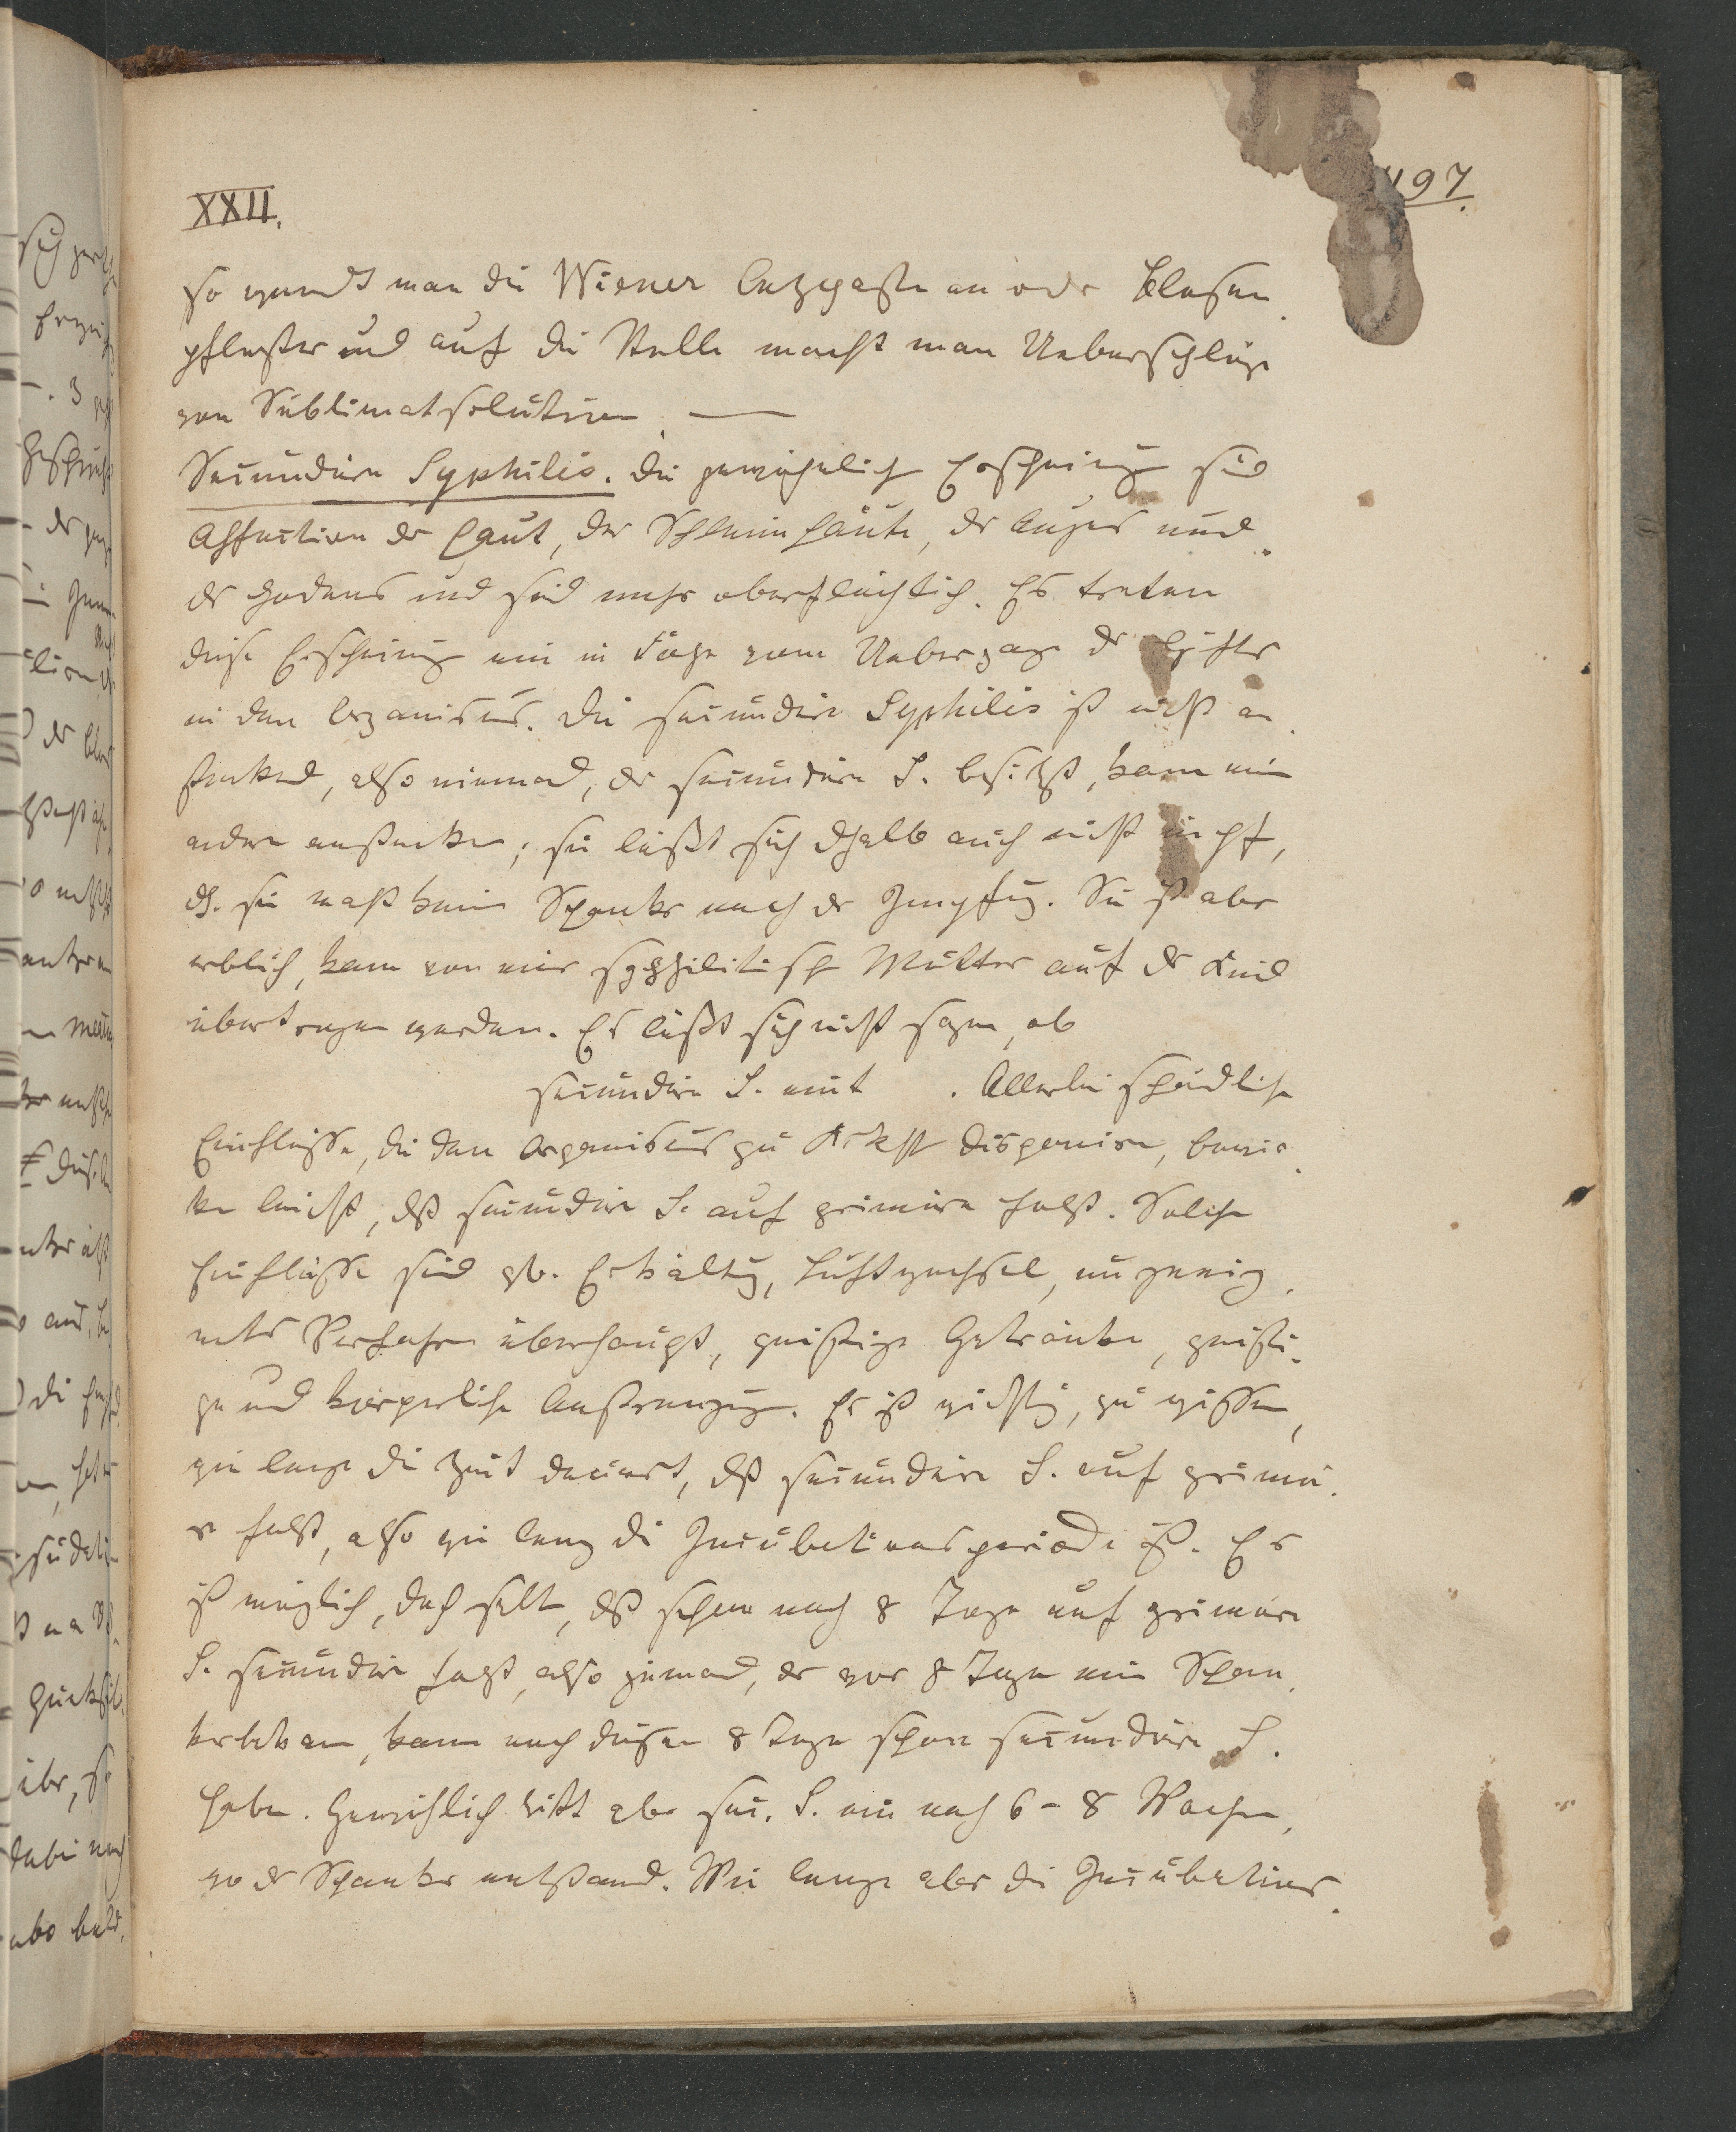 XXII.
197.
so wendt man die Wiener Aetzpaste an oder Blasen-
pflaster und auf die Stelle macht man Ueberschläge
von Sublimatsolution. —
Secundäre Syphilis. Die gewöhnlich Erscheinung sid
Affection der Haut, der Schleimhäute, des Auges und
des Hodens und sid mehr oberflächlich. Es treten
diese Erscheinung ein in Folge vom Uebergange des Giftes
in den Organismus. Die secundäre Syphilis ist nicht an-
steckend, also niemand, der secundäre S. besitzt, kann ein
andern anstecken; sie läßt sich dshalb auch nicht impf,
dh. sie macht kein Schanker nach der Impfung. Sie ist aber
erblich, kann von einer syphilitisch Mutter auf das Kind
übertragen werden. Es läßt sich nicht sagen, ob
secundäre S. eint . Allerlei schädliche
Einflüsse, die den Organismus zu Krkht disponiren, bewir-
ken leicht, dß secundäre S. auf primäre folgt. Solche
Einflüsse sind zb. Erkältung, Luftwechsel, ungeeig-
netes Verfahren überhaupt, geistige Getränke, geisti-
ge und körperliche Anstrengung. Es ist wichtig, zu wissen,
wie lange die Zeit dauert, dß secundäre S. auf primä-
re folgt, also wie lang die Incubationsperiode ist. Es
ist möglich, doch selt, dß schon nach 8 Tage auf primäre
S. secundäre folgt, also jemand, der vor 8 Tage ein Schan-
ker bekam, kann nach diesen 8 Tage schon secundäre S.
haben. Gewöhlich tritt aber sec. S. ein nach 6 - 8 Wochen,
wo der Schanker entstand. Wie lange aber die Incubations-